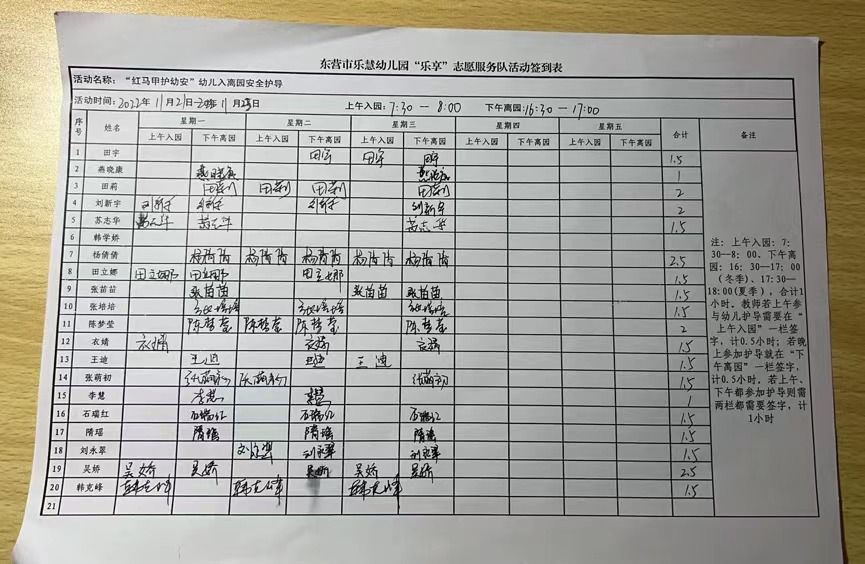 东营市乐慧幼儿园“乐享”志愿服务队活动签到表
活动名称：“红马甲护幼安”幼儿入离园安全护导
活动时间：2022年11月21日-2022年11月23日 上午入园：7:30－8:00 下午离园：16:30－17:00
序号 姓名 星期一 星期二 星期三 星期四 星期五 合计 备注
上午入园 下午离园 上午入园 下午离园 上午入园 下午离园 上午入园 下午离园 上午入园 下午离园
1 田宇 田宇 田宇 田宇 1.5
2 燕晓康 燕晓康 燕晓康 1
3 田莉 田莉 田莉 田莉 田莉 2
4 刘新宇 刘新宇 刘新宇 刘新宇 刘新宇 2
5 苏志华 苏志华 苏志华 苏志华 1.5
6 韩学娇
7 杨倩倩 杨倩倩 杨倩倩 杨倩倩 杨倩倩 杨倩倩 2.5
8 田立娜 田立娜 田立娜 田立娜 1.5
9 张苗苗 张苗苗 张苗苗 张苗苗 1.5
10 张培培 张培培 张培培 张培培 1.5
11 陈梦莹 陈梦莹 陈梦莹 陈梦莹 陈梦莹 2
12 衣婧 衣婧 衣婧 衣婧 1.5
13 王迪 王迪 王迪 王迪 1.5
14 张萌初 张萌初 张萌初 张萌初 1.5
15 李慧 李慧 李慧 1
16 石瑞红 石瑞红 石瑞红 石瑞红 1.5
17 隋瑶 隋瑶 隋瑶 隋瑶 1.5
18 刘永翠 刘永翠 刘永翠 刘永翠 1.5
19 吴娇 吴娇 吴娇 吴娇 吴娇 吴娇 2.5
20 韩克峰 韩克峰 韩克峰 韩克峰 1.5
21
注：上午入园：7：
30—8：00、下午离
园：16：30—17：00
（冬季）、17:30—
18:00(夏季)，合计1
小时。教师若上午参
与幼儿护导需要在“
上午入园”一栏签
字，计0.5小时；若晚
上参加护导就在“下
午离园”一栏签字，
计0.5小时。若上午、
下午都参加护导则需
两栏都需要签字，计
1小时